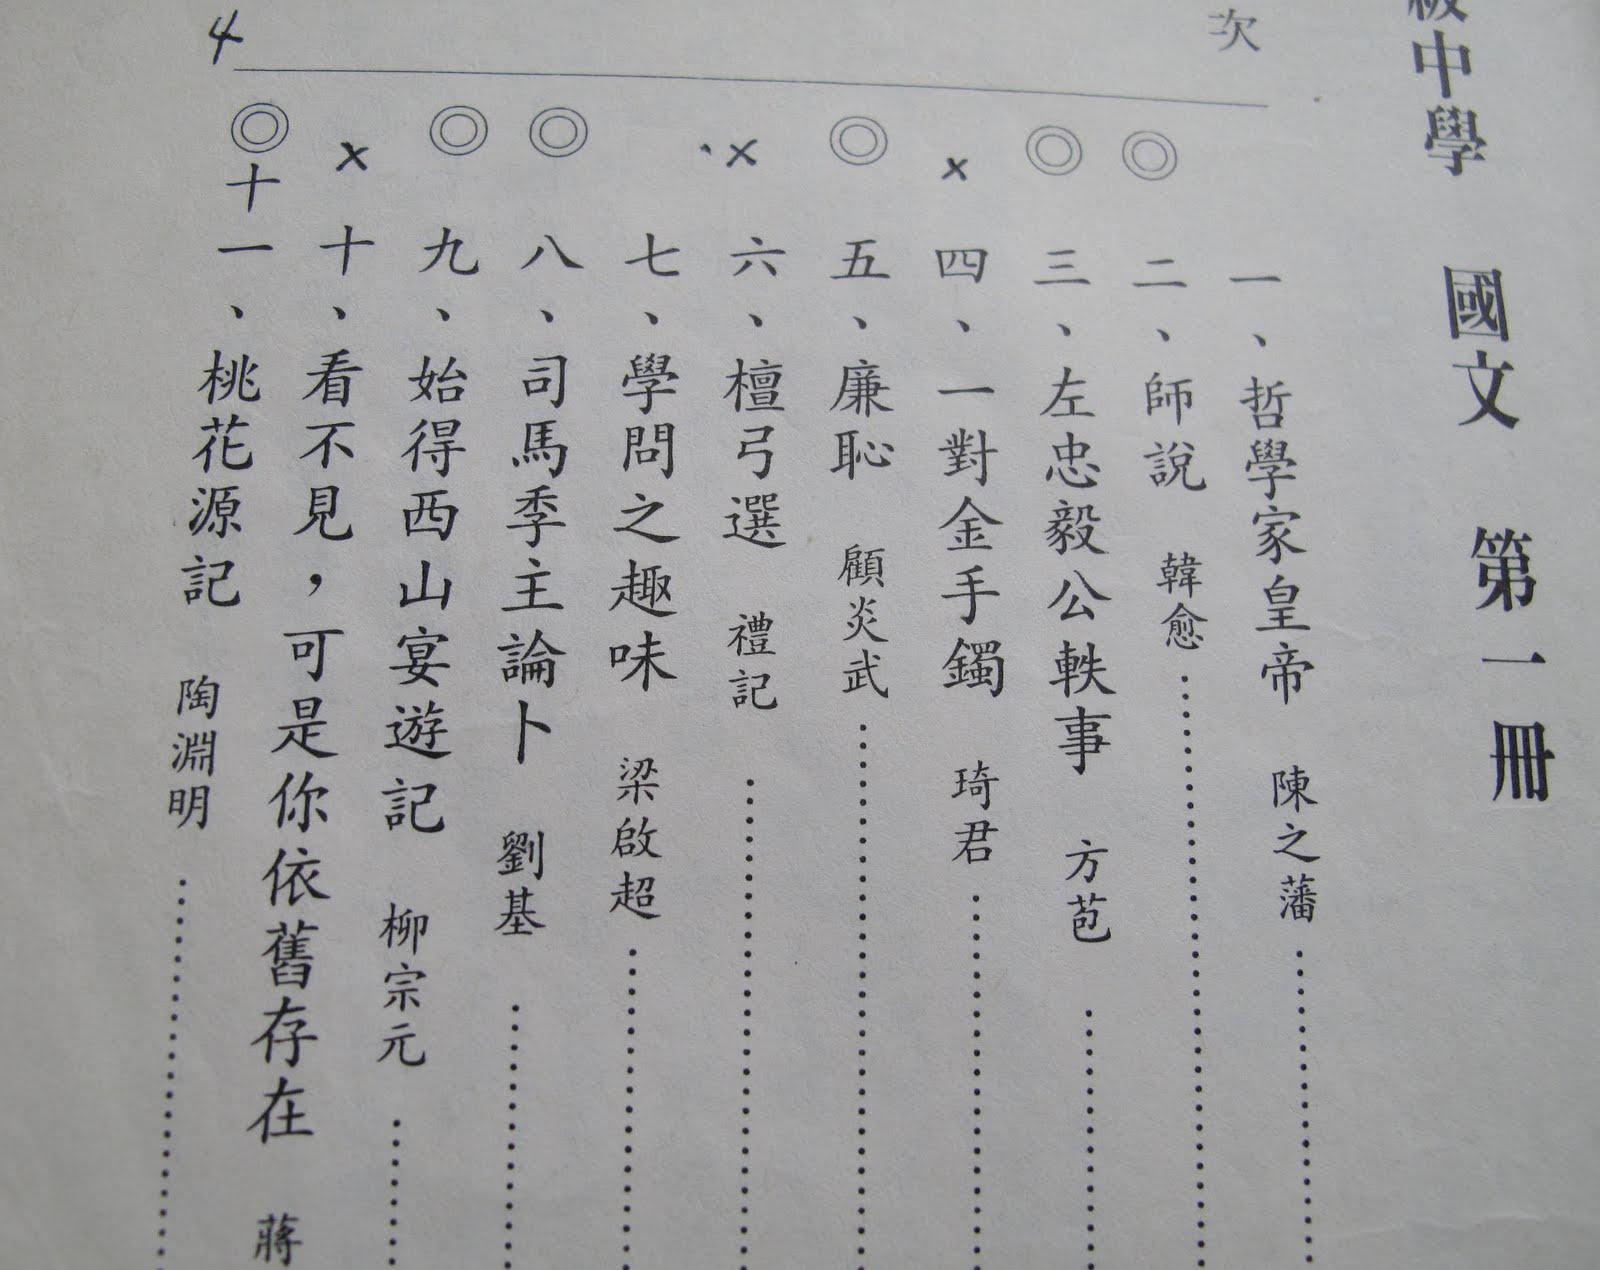 級中學 國文 第一冊
次
一、哲學家皇帝 陳之藩
◎二、師說 韓愈
◎三、左忠毅公軼事 方苞
×四、一對金手鐲 琦君
◎五、廉恥 顧炎武
×六、檀弓選 禮記
七、學問之趣味 梁啟超
◎八、司馬季主論卜 劉基
◎九、始得西山宴遊記 柳宗元
×十、看不見，可是你依舊存在 蔣
◎十一、桃花源記 陶淵明
4